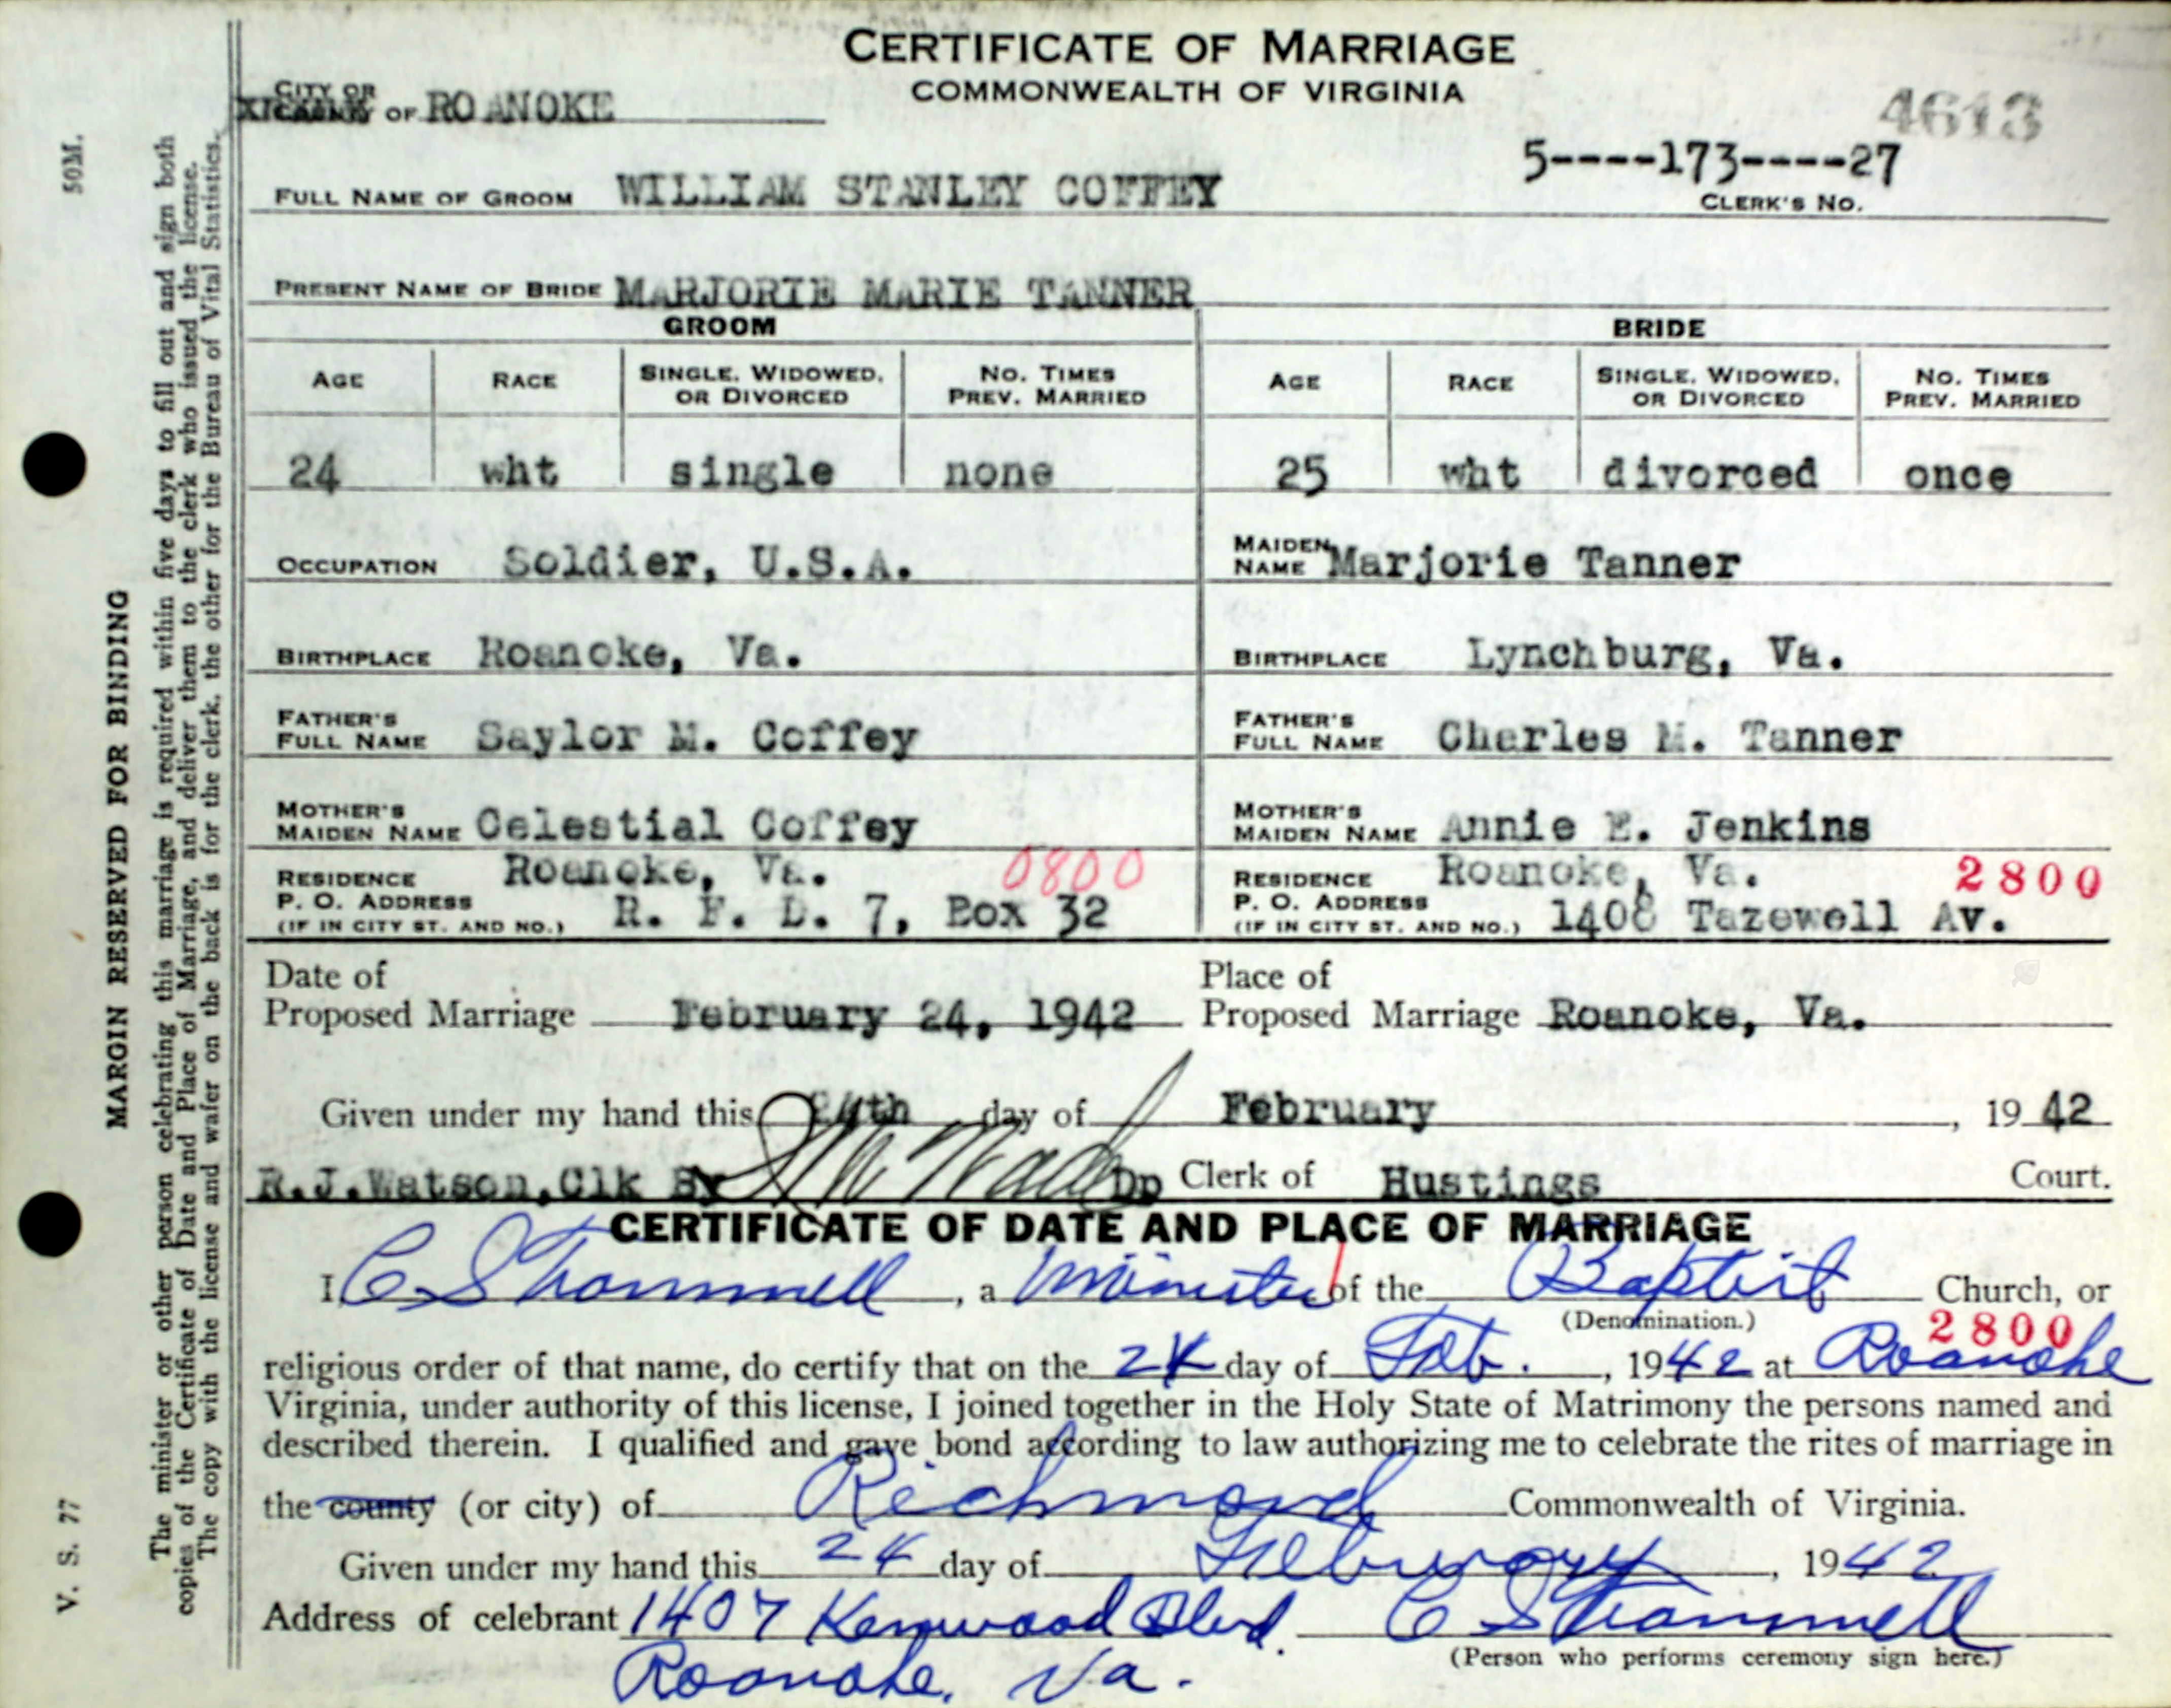 CERTIFICATE OF MARRIAGE
COMMONWEALTH OF VIRGINIA
4613
CITY OR
COUNTY OF ROANOKE
5----173----27
CLERK'S NO.
FULL NAME OF GROOM WILLIAM STANLEY COFFEY
PRESENT NAME OF BRIDE MARJORIE MARIE TANNER
GROOM BRIDE
AGE RACE SINGLE, WIDOWED, OR DIVORCED NO. TIMES PREV. MARRIED AGE RACE SINGLE, WIDOWED, OR DIVORCED NO. TIMES PREV. MARRIED
24 wht single none 25 wht divorced once
OCCUPATION Soldier, U.S.A. MAIDEN NAME Marjorie Tanner
BIRTHPLACE Roanoke, Va. BIRTHPLACE Lynchburg, Va.
FATHER'S FULL NAME Saylor M. Coffey FATHER'S FULL NAME Charles M. Tanner
MOTHER'S MAIDEN NAME Celestial Coffey MOTHER'S MAIDEN NAME Annie E. Jenkins
RESIDENCE Roanoke, Va. 0800 RESIDENCE Roanoke, Va. 2800
P. O. ADDRESS R. F. D. 7, Box 32 P. O. ADDRESS 1408 Tazewell Av.
(IF IN CITY ST. AND NO.) (IF IN CITY ST. AND NO.)
Date of Place of
Proposed Marriage February 24, 1942 Proposed Marriage Roanoke, Va.
Given under my hand this 24th day of February, 1942
R.J.Watson,Clk By Dp Clerk of Hustings Court.
CERTIFICATE OF DATE AND PLACE OF MARRIAGE
I, C S Trammell, a Minister of the Baptist Church, or
(Denomination.)
2800
religious order of that name, do certify that on the 24 day of Feb., 1942 at Roanoke
Virginia, under authority of this license, I joined together in the Holy State of Matrimony the persons named and
described therein. I qualified and gave bond according to law authorizing me to celebrate the rites of marriage in
the county (or city) of Richmond Commonwealth of Virginia.
Given under my hand this 24 day of February, 1942
Address of celebrant 1407 Kenwood Blvd. C S Trammell
Roanoke, Va. (Person who performs ceremony sign here.)
50M.
MARGIN RESERVED FOR BINDING
V. S. 77
The minister or other person celebrating this marriage is required within five days to fill out and sign both
copies of the Certificate of Date and Place of Marriage, and deliver them to the clerk who issued the license.
The copy with the license and wafer on the back is for the clerk, the other for the Bureau of Vital Statistics.